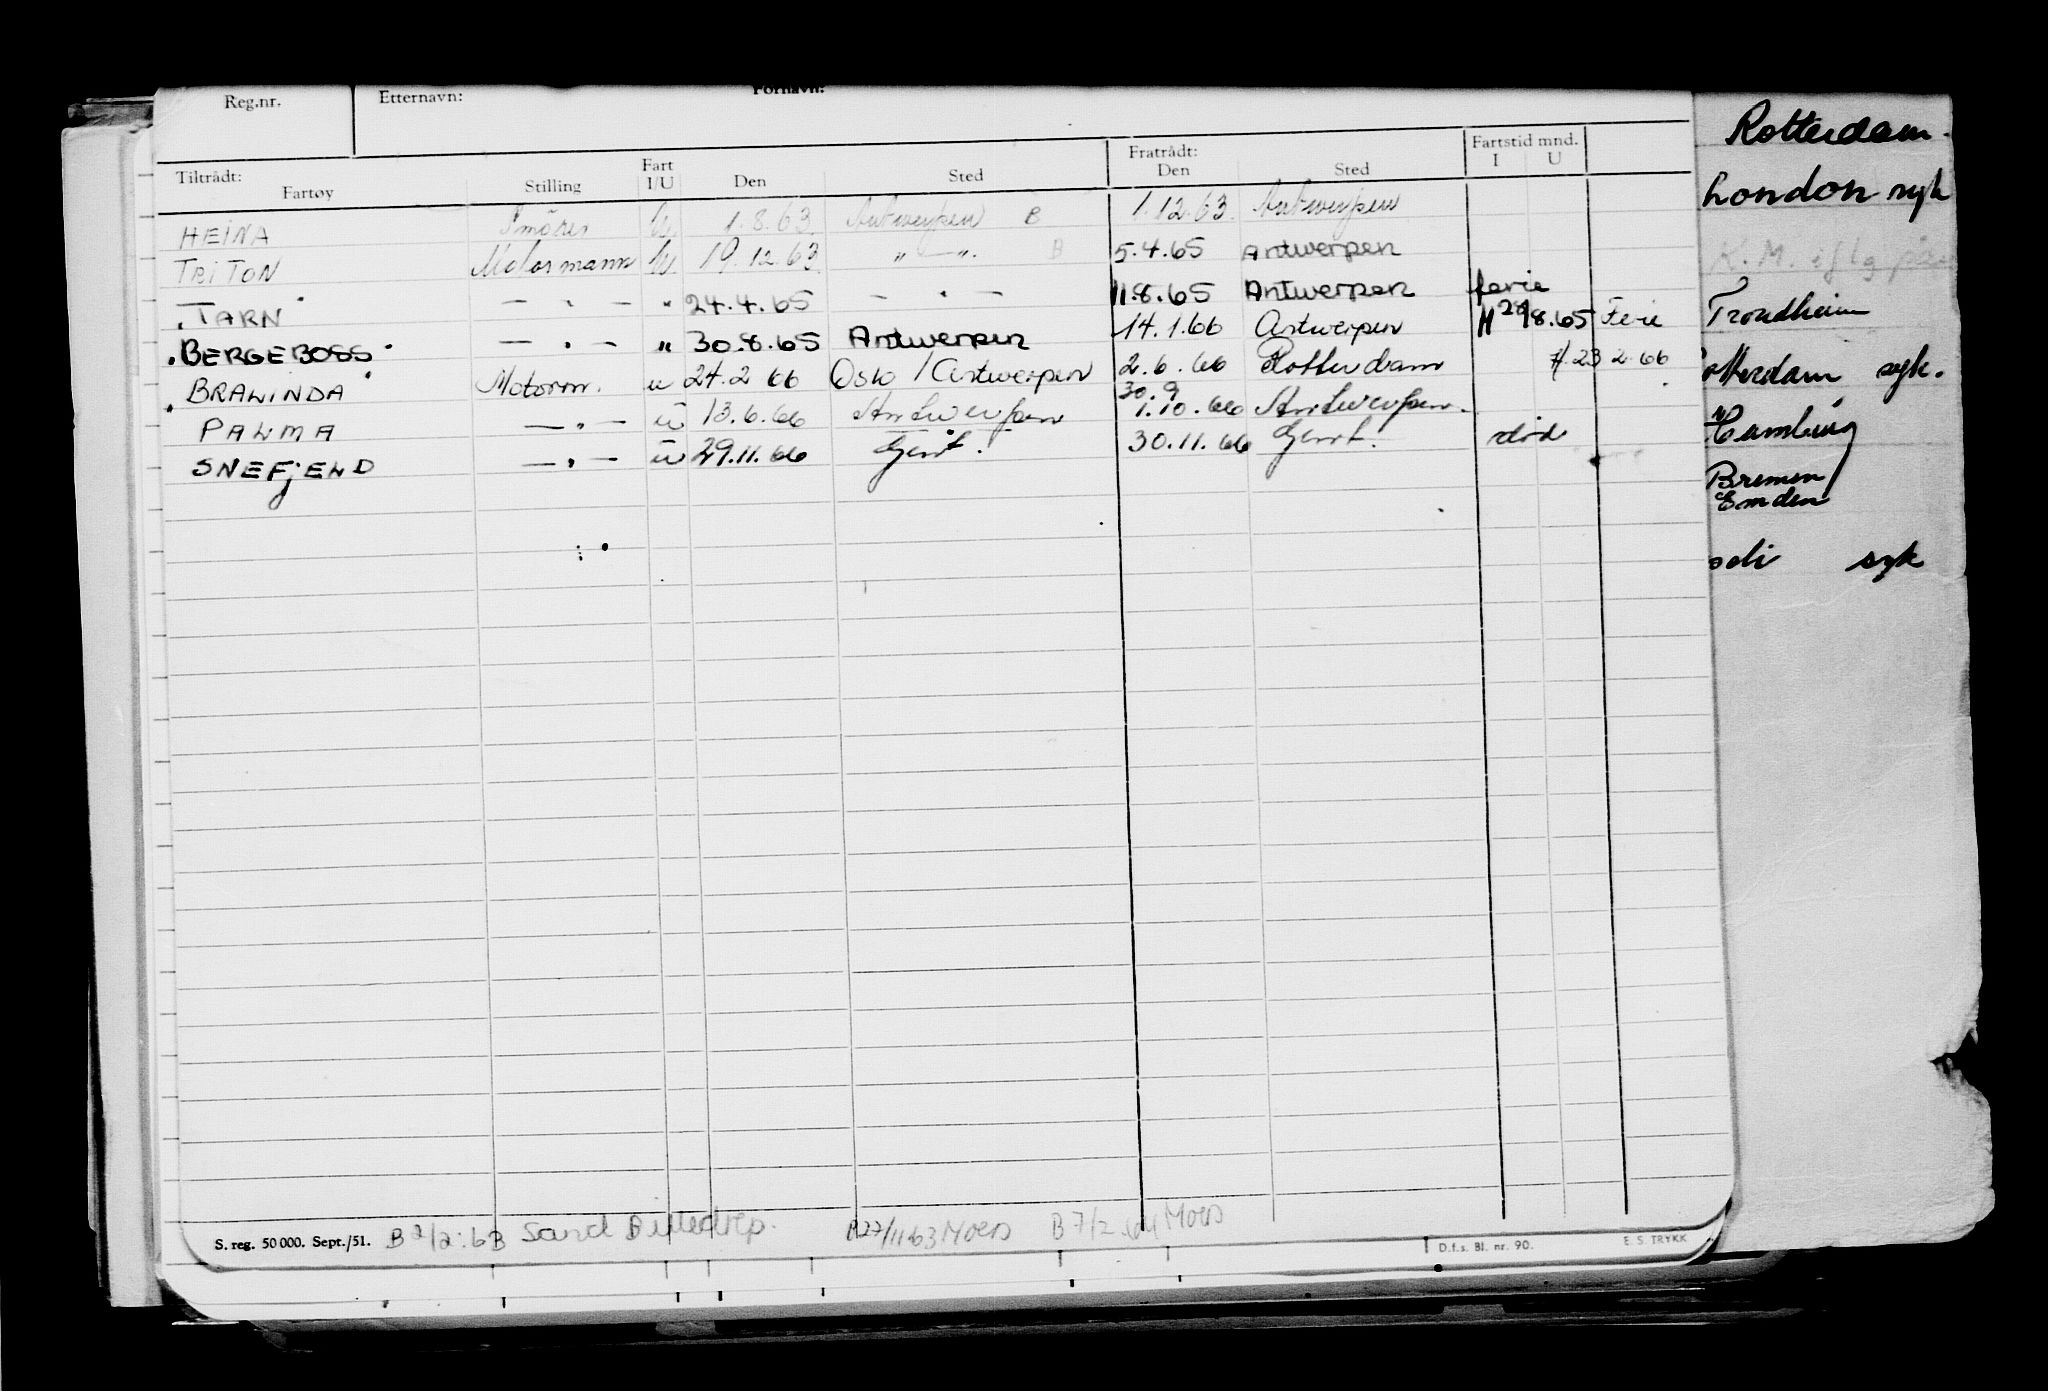 Reg.nr. Etternavn: Fornavn:
Tiltrådt: Fratrådt: Fartstid mnd.
Fartøy Stilling Fart I/U Den Sted Den Sted I U
HEINA Smører U 1.8.63. Antwerpen B 1.12.63. Antwerpen
TRITON Motormann U 19.12.63. " — ". B 5.4.65 Antwerpen
TARN — " — " 24.4.65 — " — 11.8.65 Antwerpen ferie
BERGEBOSS — " — " 30.8.65 Antwerpen 14.1.66 Antwerpen 29/8.65 Ferie
BRALINDA Motorm. u 24.2 66 Oslo / Antwerpen 2.6.66 Rotterdam 23 2.66
PALMA — " — u 13.6.66 Antwerpen 30.9 1.10.66 Antwerpen.
SNEFJELD — " — u 29.11.66 Gent. 30.11.66 Gent. død
S. reg. 50 000. Sept./51. B 2/2.63 Sand B 27/11.63 Moss B 7/2 Moss
D.f.s. Bl. nr. 90. E. S. TRYKK
Rotterdam.
London syk
K. M.
Trondheim
otterdam syk.
Hamburg
Bremen
Emden
syk